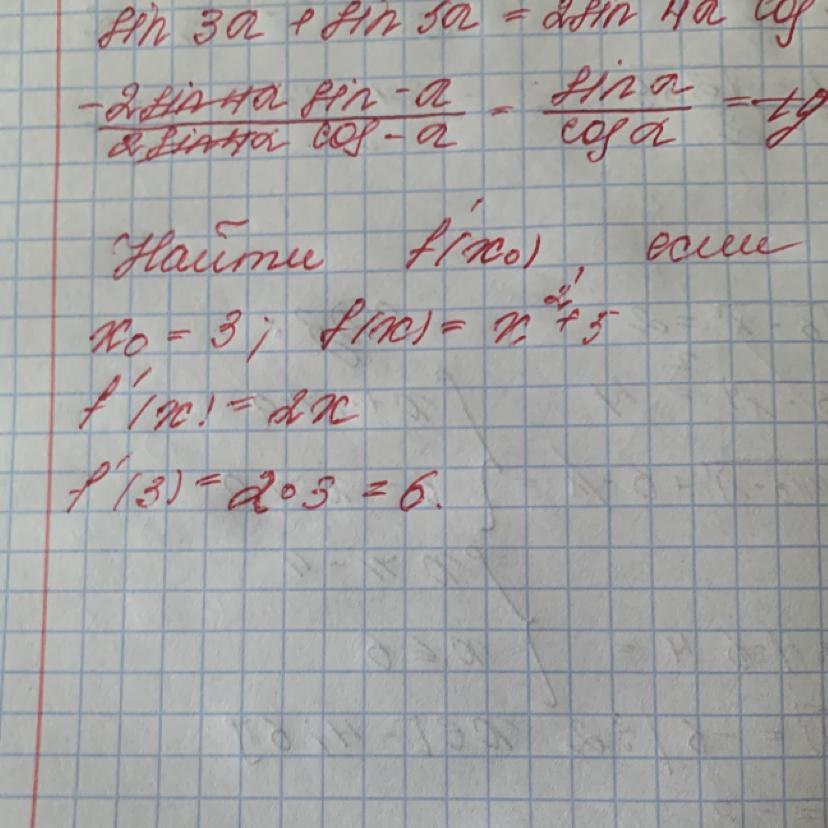 sin 3a + sin 5a = 2sin 4a cos
-2sin4a sin -a / 2sin4a cos -a = sin a / cos a = tg
Найти f'(x₀) если
x₀ = 3; f(x) = x² + 5
f'(x) = 2x
f'(3) = 2·3 = 6.